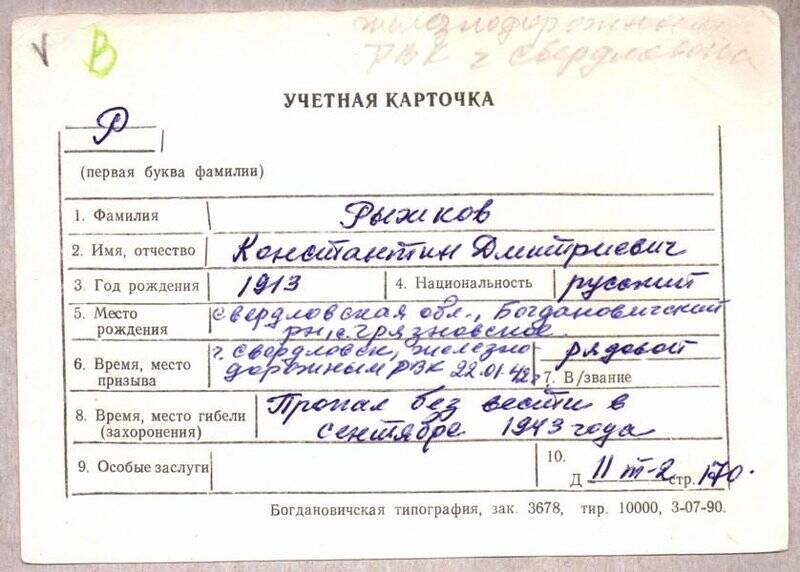 железнодорожным
РВК г Свердловска
V В
УЧЕТНАЯ КАРТОЧКА
Р
(первая буква фамилии)
1. Фамилия Рыжков
2. Имя, отчество Константин Дмитриевич
3. Год рождения 1913 4. Национальность русский
5. Место рождения Свердловская обл., Богдановичский
рн, с. Грязновское.
6. Время, место призыва г. Свердловск, железно-
дорожным РВК 22.01.42г
рядовой
7. В/звание
8. Время, место гибели Пропал без вести в
(захоронения) сентябре 1943 года
9. Особые заслуги
10.
Д 11 т-2 стр. 170.
Богдановичская типография, зак. 3678, тир. 10000, 3-07-90.